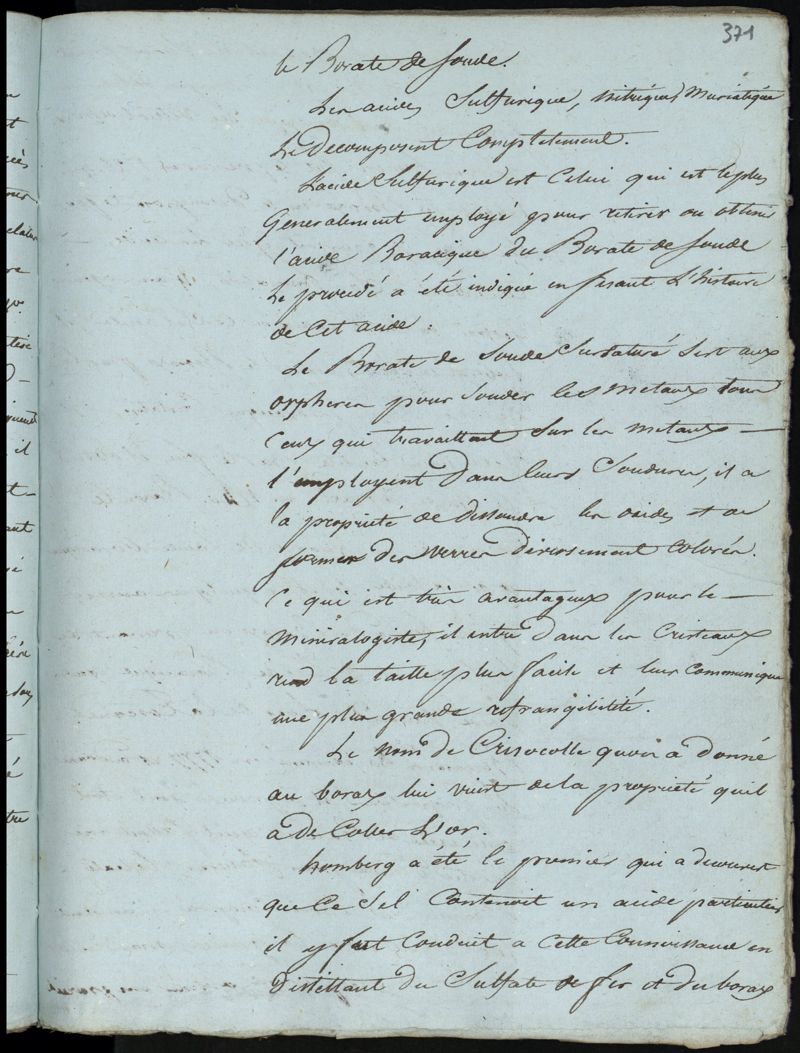 371
le Borate de Soude.
Les acides Sulfurique, nitrique, Muriatique
Le Decomposent Completement.
L'acide Sulfurique est Celui qui est le plus
Generalement employé pour retirer ou obtenir
l'acide Boracique du Borate de Soude
Le procédé a été indiqué en fesant L'histoire
de Cet acide.
Le Borate de Soude Sursaturé sert aux
orphevres pour Souder les metaux tous
Ceux qui travaillent Sur les metaux —
l'employent Dans leurs Soudures, il a
la proprieté de dissoudre les oxides et de
former des verres diversement Colorés.
Ce qui est très avantageux pour le —
Mineralogiste, il entre Dans les Cristeaux
rend la taille plus facile et leur Communique
une plus grande refrangibilité.
Le nom de Crisocolle qu'on a donné
au borax lui vient de la proprieté qu'il
a De Coller L'or.
homberg a été le premier qui a decouvert
que Ce Sel Contenoit un acide particulier
il y fut Conduit a Cette Connoissance en
Distillant du Sulfate de fer et du borax